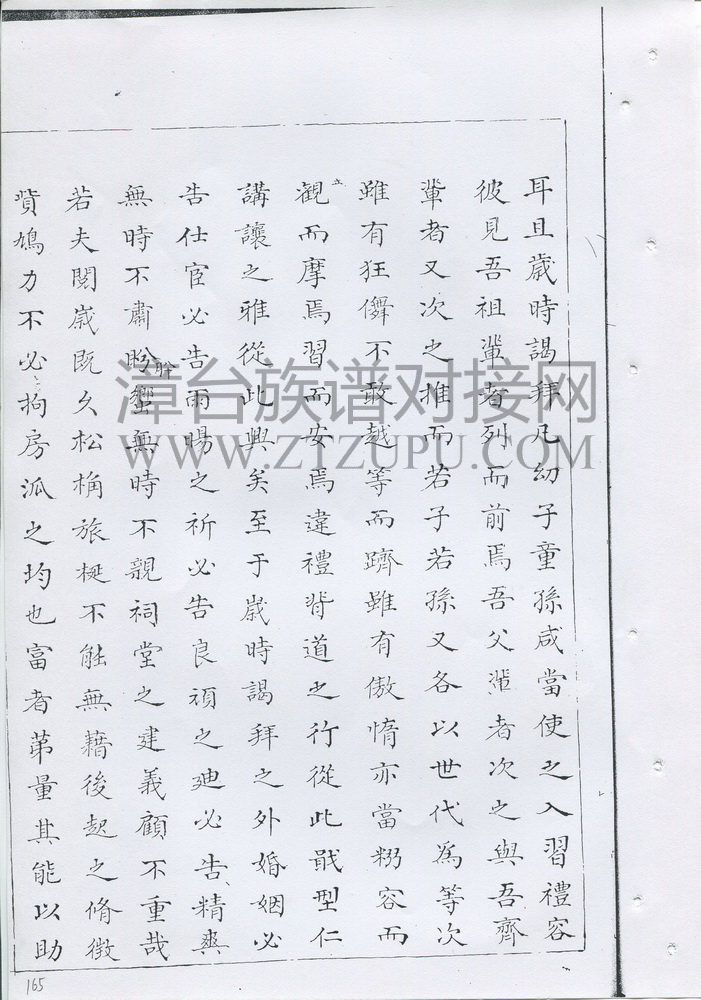 耳且歲時謁拜凡幼子童孫咸當使之入習禮容
彼見吾祖輩者列而前焉吾父輩者次之與吾齊
輩者又次之推而若子若孫又各以世代為等次
雖有狂儛不敢越等而躋雖有傲惰亦當粉容而
觀而摩焉習而安焉違禮背道之行從此戢型仁
講讓之雅從此興矣至于歲時謁拜之外婚姻必
告仕宦必告雨暘之祈必告良頑之廸必告精爽
無時不肅肹蠁無時不親祠堂之建義顧不重哉
若夫閱歲既久松桷旅梴不能無藉後起之脩徵
貲鳩力不必拘房派之均也富者第量其能以助
漳台族谱对接网
WWW.ZTZUPU.COM
165